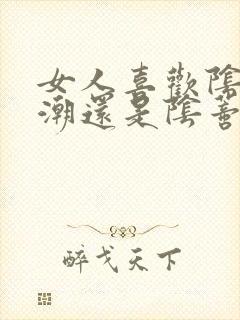 女人喜歡陰
潮還是陰蒂
醉戈天下